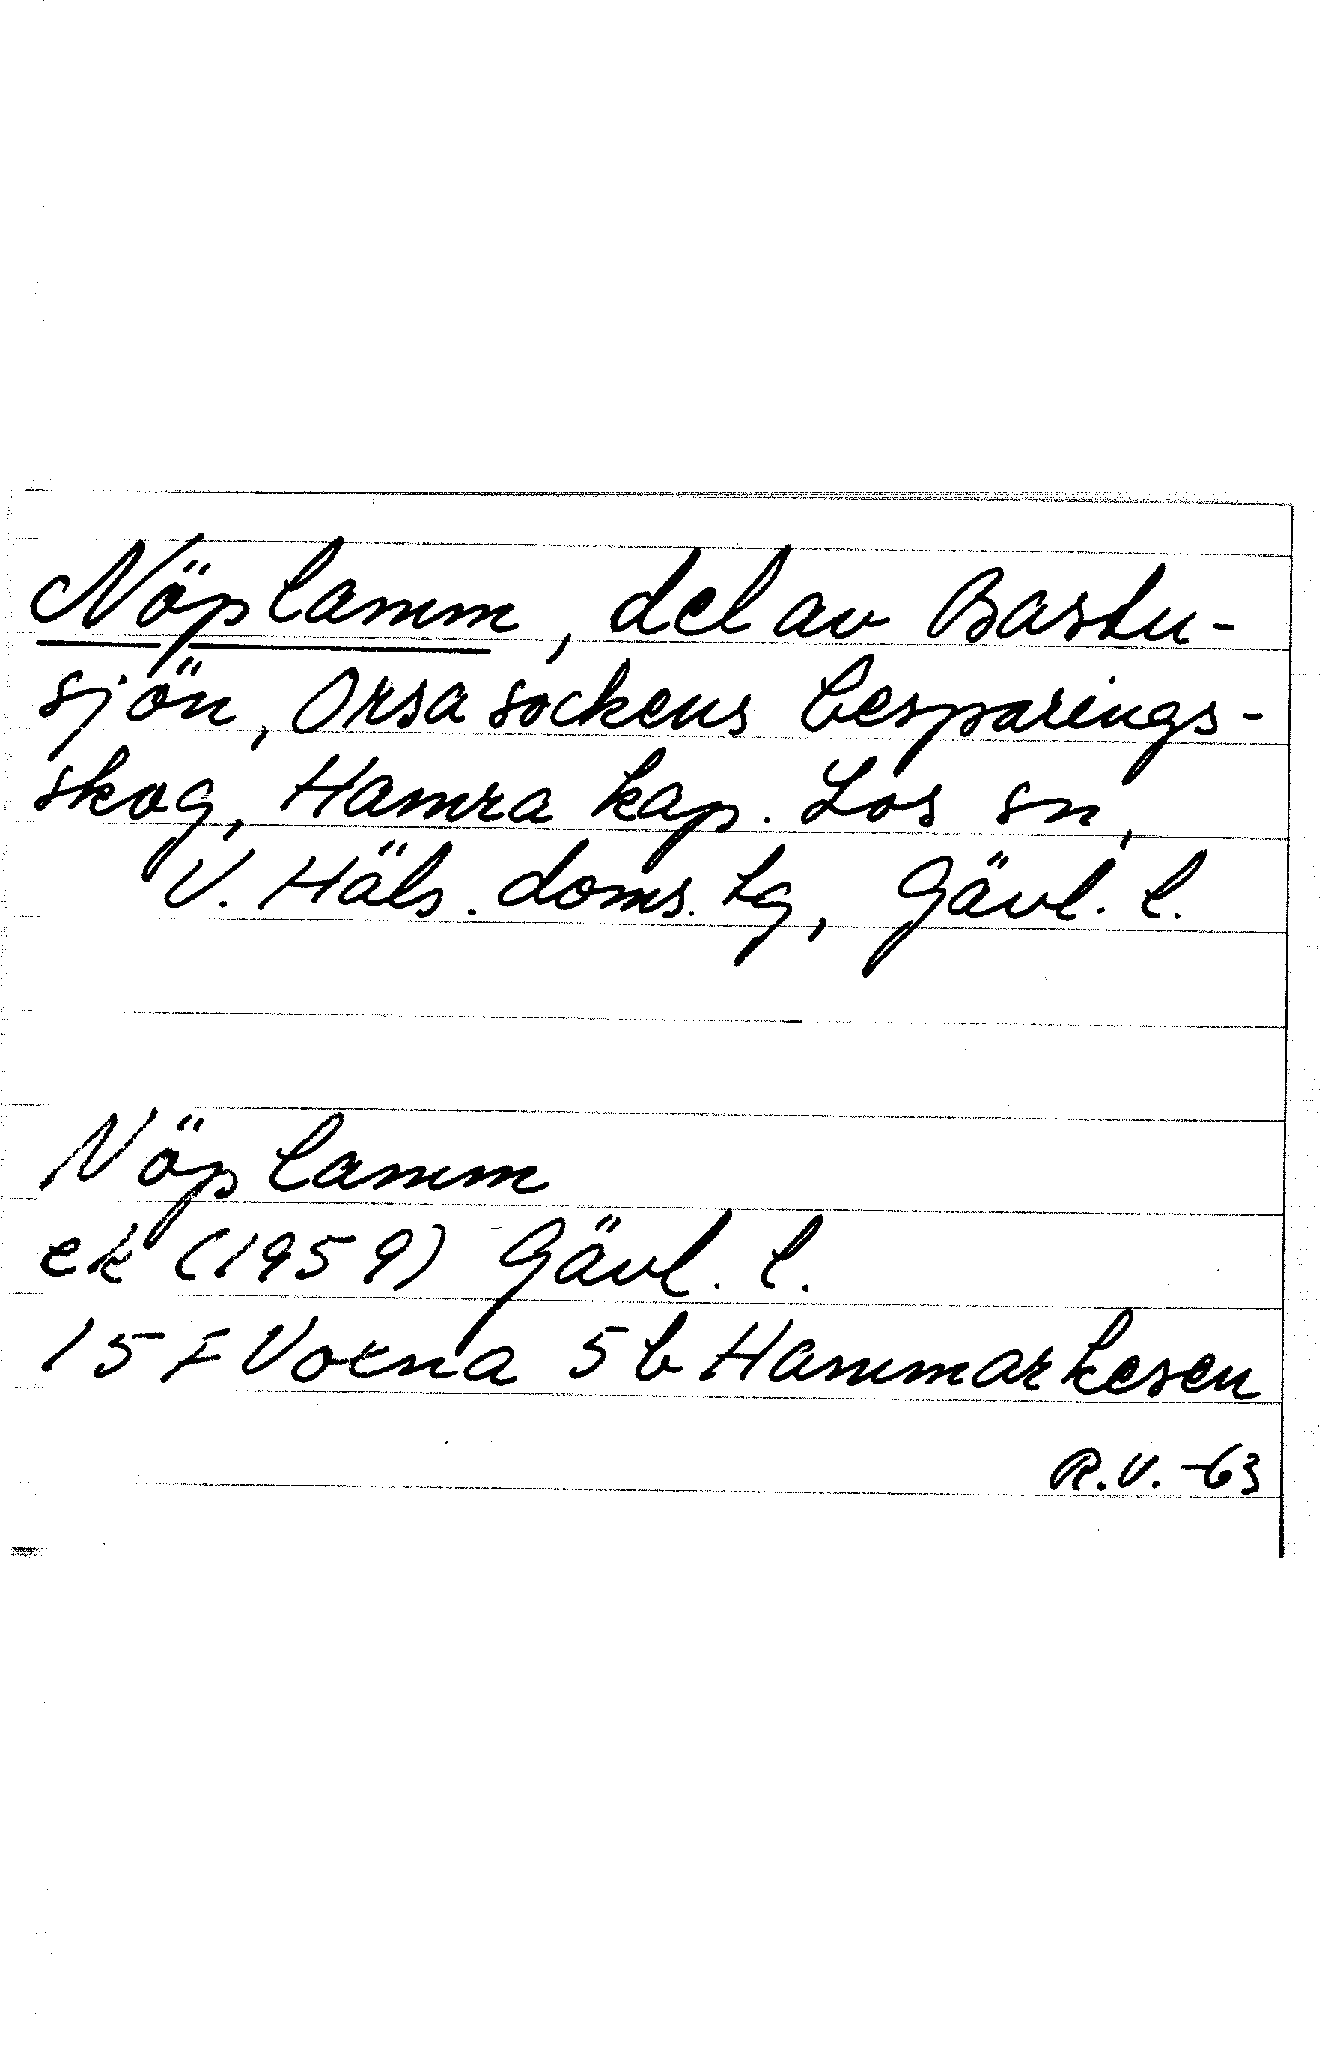 Nöplamm, del av Bastu-
sjön, Orsa sockens besparings-
skog, Hamra kap. Los sn,
V. Häls. doms. tg, Gävl. l.
Nöplamm
ek (1959) Gävl. l.
15 F Voxna 5 b Hammarkesen
R.V. -63